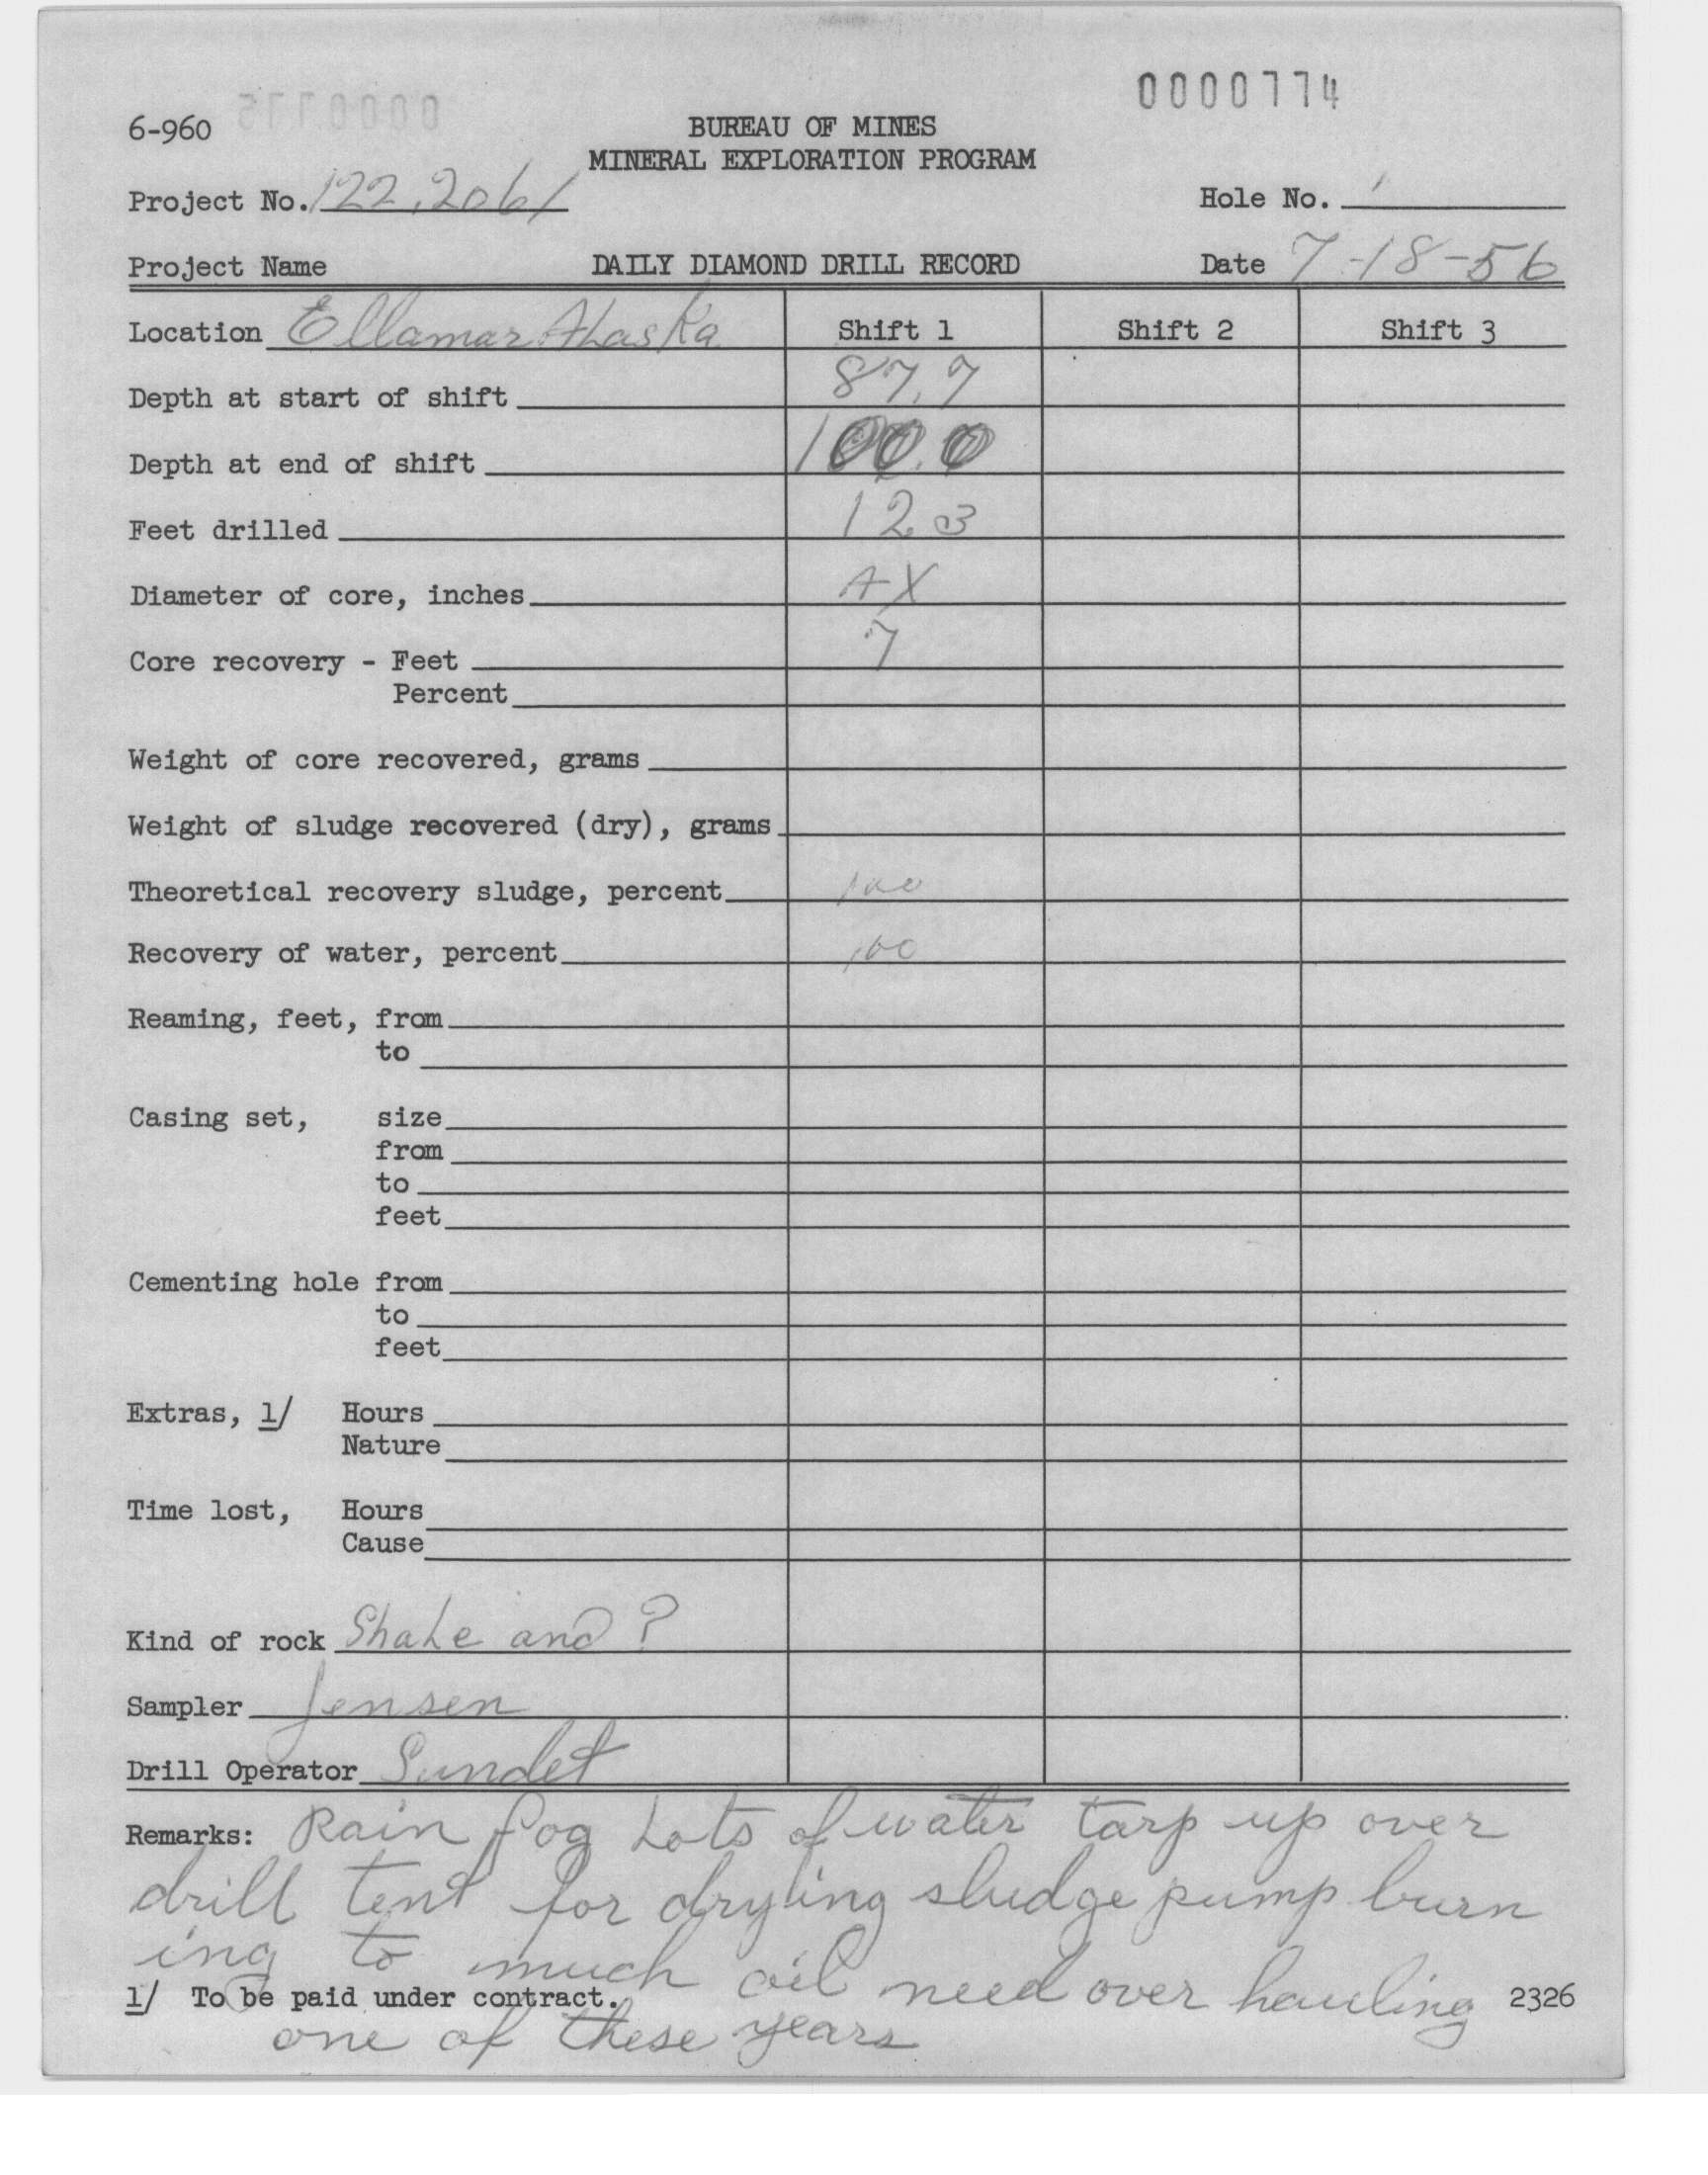 0000774
6-960
BUREAU OF MINES
MINERAL EXPLORATION PROGRAM
Project No. 122.2061 Hole No. 1
Project Name DAILY DIAMOND DRILL RECORD Date 7-18-56
Location Ellamar Alaska Shift 1 Shift 2 Shift 3
Depth at start of shift 87.7
Depth at end of shift 100.0
Feet drilled 12.3
Diameter of core, inches AX
Core recovery - Feet 7
Percent
Weight of core recovered, grams
Weight of sludge recovered (dry), grams
Theoretical recovery sludge, percent 100
Recovery of water, percent 100
Reaming, feet, from
to
Casing set, size
from
to
feet
Cementing hole from
to
feet
Extras, 1/ Hours
Nature
Time lost, Hours
Cause
Kind of rock Shale and ?
Sampler Jensen
Drill Operator Sundet
Remarks: Rain fog Lots of water tarp up over
drill tent for drying sludge pump burn
ing to much oil need over hauling
1/ To be paid under contract. 2326
one of these years